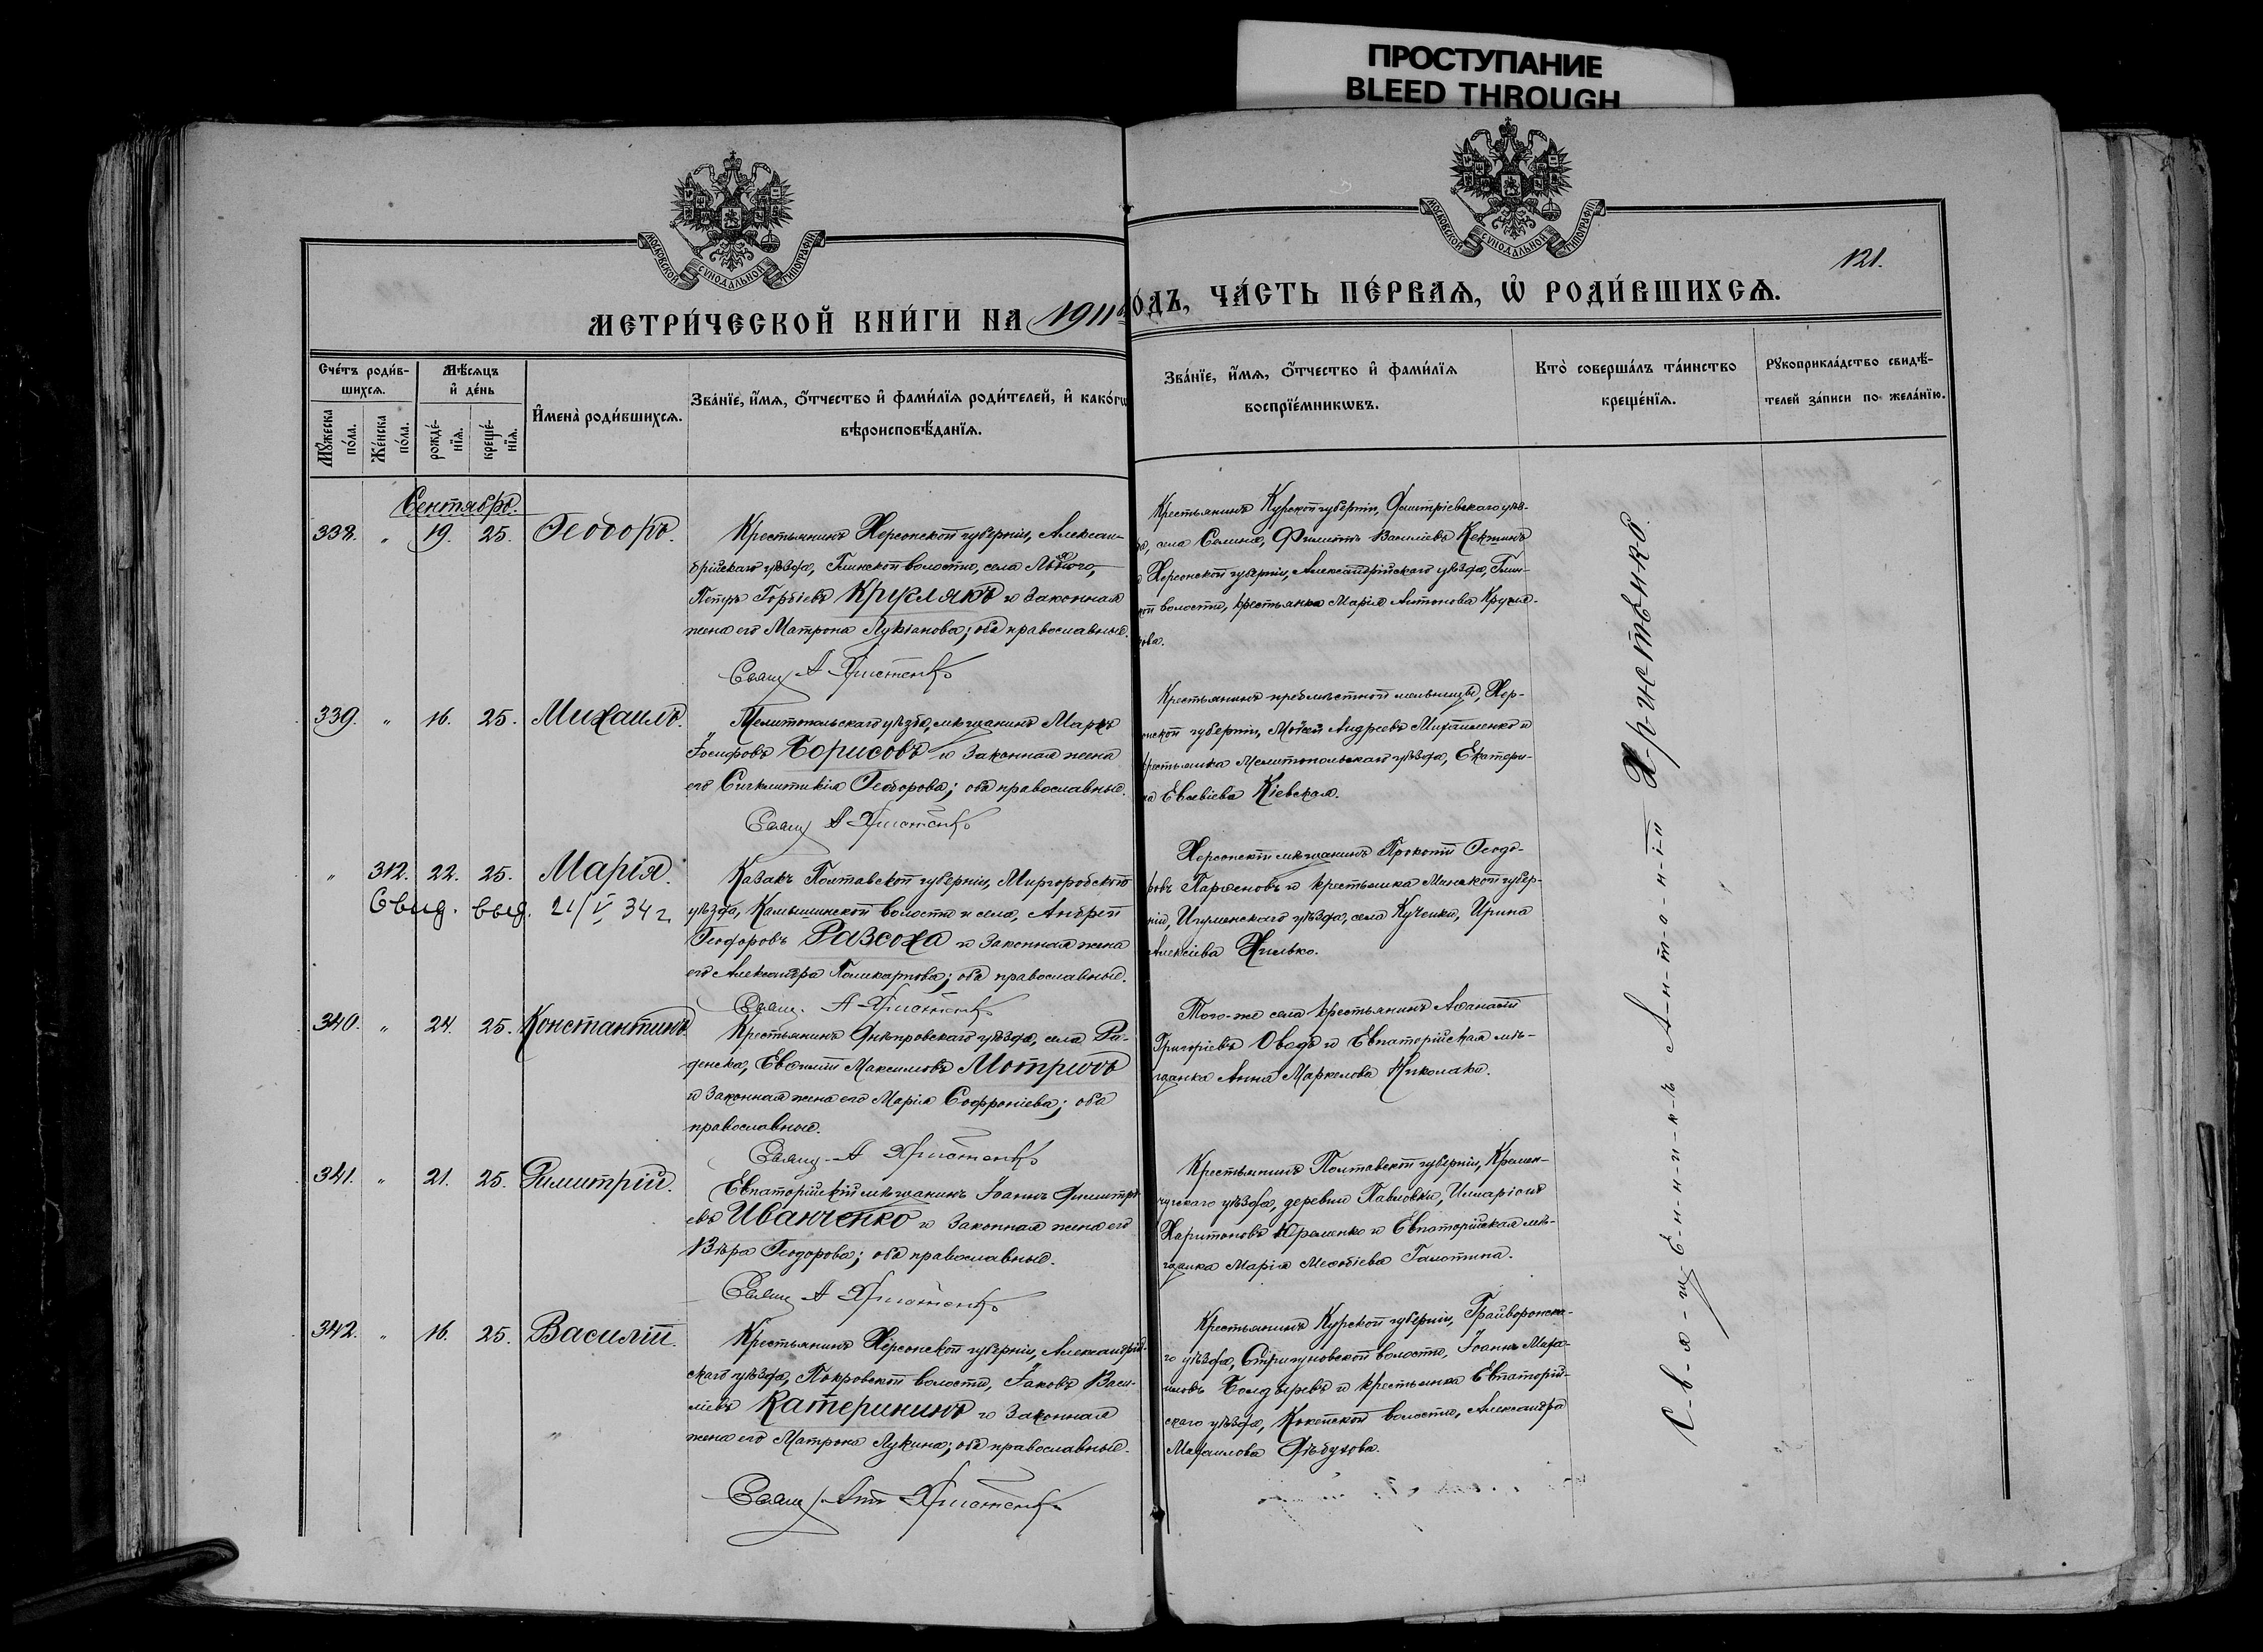 ПРОСТУПАНИЕ
BLEED THROUGH
МОСКОВСКОЙ СѴНОДАЛЬНОЙ ТИПОГРАФІИ
МОСКОВСКОЙ СѴНОДАЛЬНОЙ ТИПОГРАФІИ
121.
МЕТРИ́ЧЕСКОЙ КНИ́ГИ НА 1911 ГО́ДЪ, ЧА́СТЬ ПЕ́РВАѦ, Ѡ҆ РОДИ́ВШИХСѦ.
Сче́тъ роди́в-
шихсѧ.
Мꙋ́жеска по́ла.
Же́нска по́ла.
Мѣ́сѧцъ
и҆ де́нь
рожде́-
нїѧ.
креще́-
нїѧ.
И҆мена̀ роди́вшихсѧ.
Зва́нїе, и҆́мѧ, ѻ҆́тчество и҆ фами́лїѧ роди́телей, и҆ како́гѡ
вѣроисповѣ́данїѧ.
Зва́нїе, и҆́мѧ, ѻ҆́тчество и҆ фами́лїѧ
воспрїе́мникѡвъ.
Кто̀ соверша́лъ та́инство
креще́нїѧ.
Рꙋкоприкла́дство свидѣ́-
телей за́писи по жела́нїю.
Сентябрь.
338. „ 19. 25. Ѳеодоръ.
Крестьянинъ Херсонской губерніи, Алексан-
дрійскаго уѣзда, Глинской волости, села
Петръ Гордіевъ Круглякъ и законная
жена его Матрона Лукіанова; оба православные.
Свящ А Христенко
Крестьянинъ Курской губерніи, Дмитріевскаго уѣз-
да, села Селина, Филиппъ Василіевъ
и Херсонской губерніи, Александрійскаго уѣзда, Глин-
ской волости, крестьянка Марія Антонова Кругля-
кова.
339. „ 16. 25. Михаилъ.
Мелитопольскаго уѣзда, мѣщанинъ Маркъ
Іосифовъ Борисовъ и законная жена
его Сигклитикія Ѳеодорова; оба православные.
Свящ А Христенко
Крестьянинъ Хер-
сонской губерніи, Мойсей Андреевъ Михайленко и
крестьянка Мелитопольскаго уѣзда, Екатери-
на Евсевіева Кіевская.
„ 312. 22. 25. Марія.
Свид. выд. 21/V 34 г.
Казакъ Полтавской губерніи, Миргородскаго
уѣзда, Камышинской волости и села, Андрей
Ѳеодоровъ Развоха и законная жена
его Александра Поликарпова; оба православные.
Свящ. А Христенко
Херсонскій мѣщанинъ Прокопій Ѳеодо-
ровъ Парѳеновъ и крестьянка Минской губер-
ніи, Игуменскаго уѣзда, села Ирина
Алексіева Хилько.
340. „ 24. 25. Константинъ.
Крестьянинъ Днѣпровскаго уѣзда, села Ра-
денска, Евѳимій Максимовъ
и законная жена его Марія Софроніева; оба
православные.
Свящ. А Христенко
Того-же села крестьянинъ Аѳанасій
Григоріевъ и Евпаторійская мѣ-
щанка Анна Маркелова Николаки.
341. „ 21. 25. Димитрій.
Евпаторійскій мѣщанинъ Іоаннъ Димитрі-
евъ Иванченко и законная жена его
Вѣра Ѳеодорова; оба православные.
Свящ А Христенко
Крестьянинъ Полтавской губерніи, Кремен-
чугскаго уѣзда, деревни Павловки, Илларіонъ
Харитоновъ и Евпаторійская мѣ-
щанка Марія Меѳодіева
342. „ 16. 25. Василій.
Крестьянинъ Херсонской губерніи, Александрій-
скаго уѣзда, Покровской волости, Іаковъ Васи-
ліевъ Катерининъ и законная
жена его Матрона Лукина; оба православные.
Свящ. Ант Христенко
Крестьянинъ Курской губерніи, Грайворонска-
го уѣзда, Стригуновской волости, Іоаннъ Миха-
иловъ Болдыревъ и крестьянка Евпаторій-
скаго уѣзда, волости, Александра
Михаилова
С-в-я-щ-е-н-н-и-к-ъ А-н-т-о-н-і-й Христенко